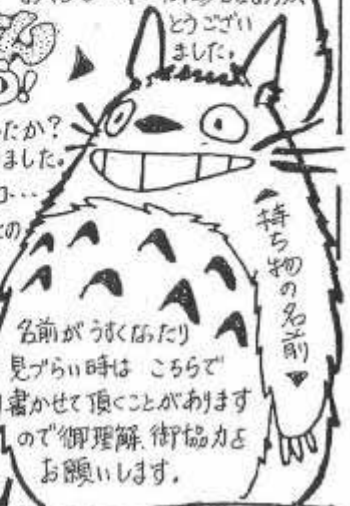 とうござい
ました。
たか?
ました。
持ち物の名前
名前がうすくなったり
見づらい時は こちらで
書かせて頂くことがあります
ので御理解、御協力を
お願いします。